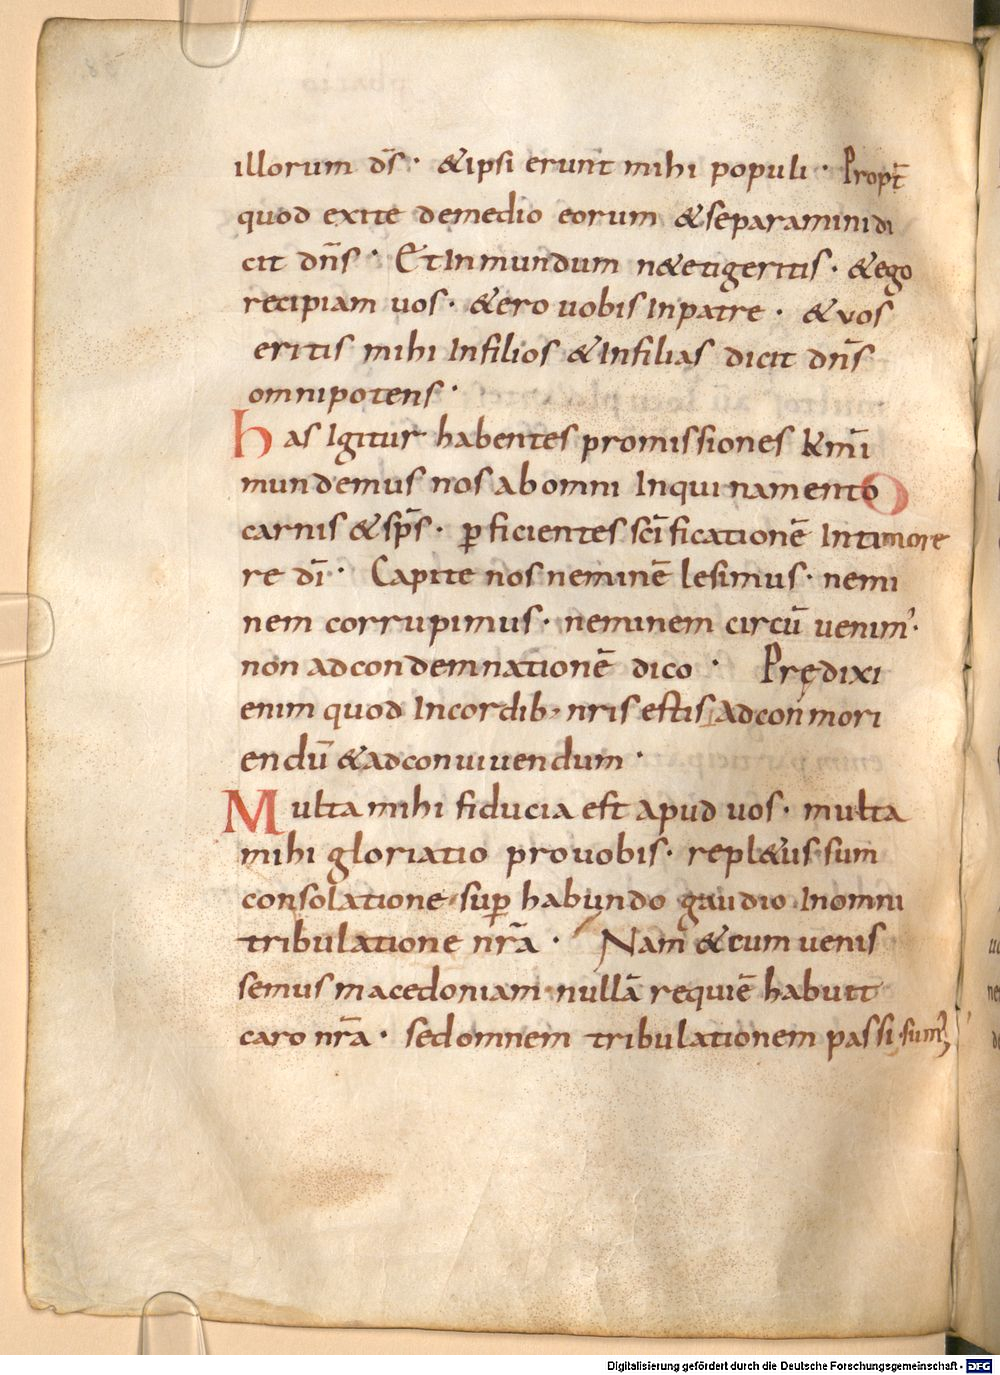 illorum ds̄· & ipsi erunt mihi populi· Propt̄
quod exite de medio eorum & separamini di
cit dn̄s· Et Inmundum n& etigeritis· & ego
recipiam uos· & ero uobis Inpatre· & vos
eritis mihi Infilios & Infilias dicit dn̄s
omnipotens·
has Igitur habentes promissiones km̄i
mundemus nos ab omni Inquinamento
carnis & sps̄· ꝑficientes scīficationē Intimore
re dī· Capite nos neminē lesimus· nemi
nem corrupimus· neminem circū uenim᾽·
non ad condemnationē dico· Prędixi
enim quod Incordib· nr̄is estis ad con mori
endū & ad conuiuendum·
Multa mihi fiducia est apud uos· multa
mihi gloriatio pro uobis· repl&us sum
consolatione· suꝑ habundo gaudio Inomni
tribulatione nr̄a· Nam & cum uenis
semus macedoniam nullā requiē habuit
caro nr̄a· sed omnem tribulationem passi sum᾽;
Digitalisierung gefördert durch die Deutsche Forschungsgemeinschaft - DFG